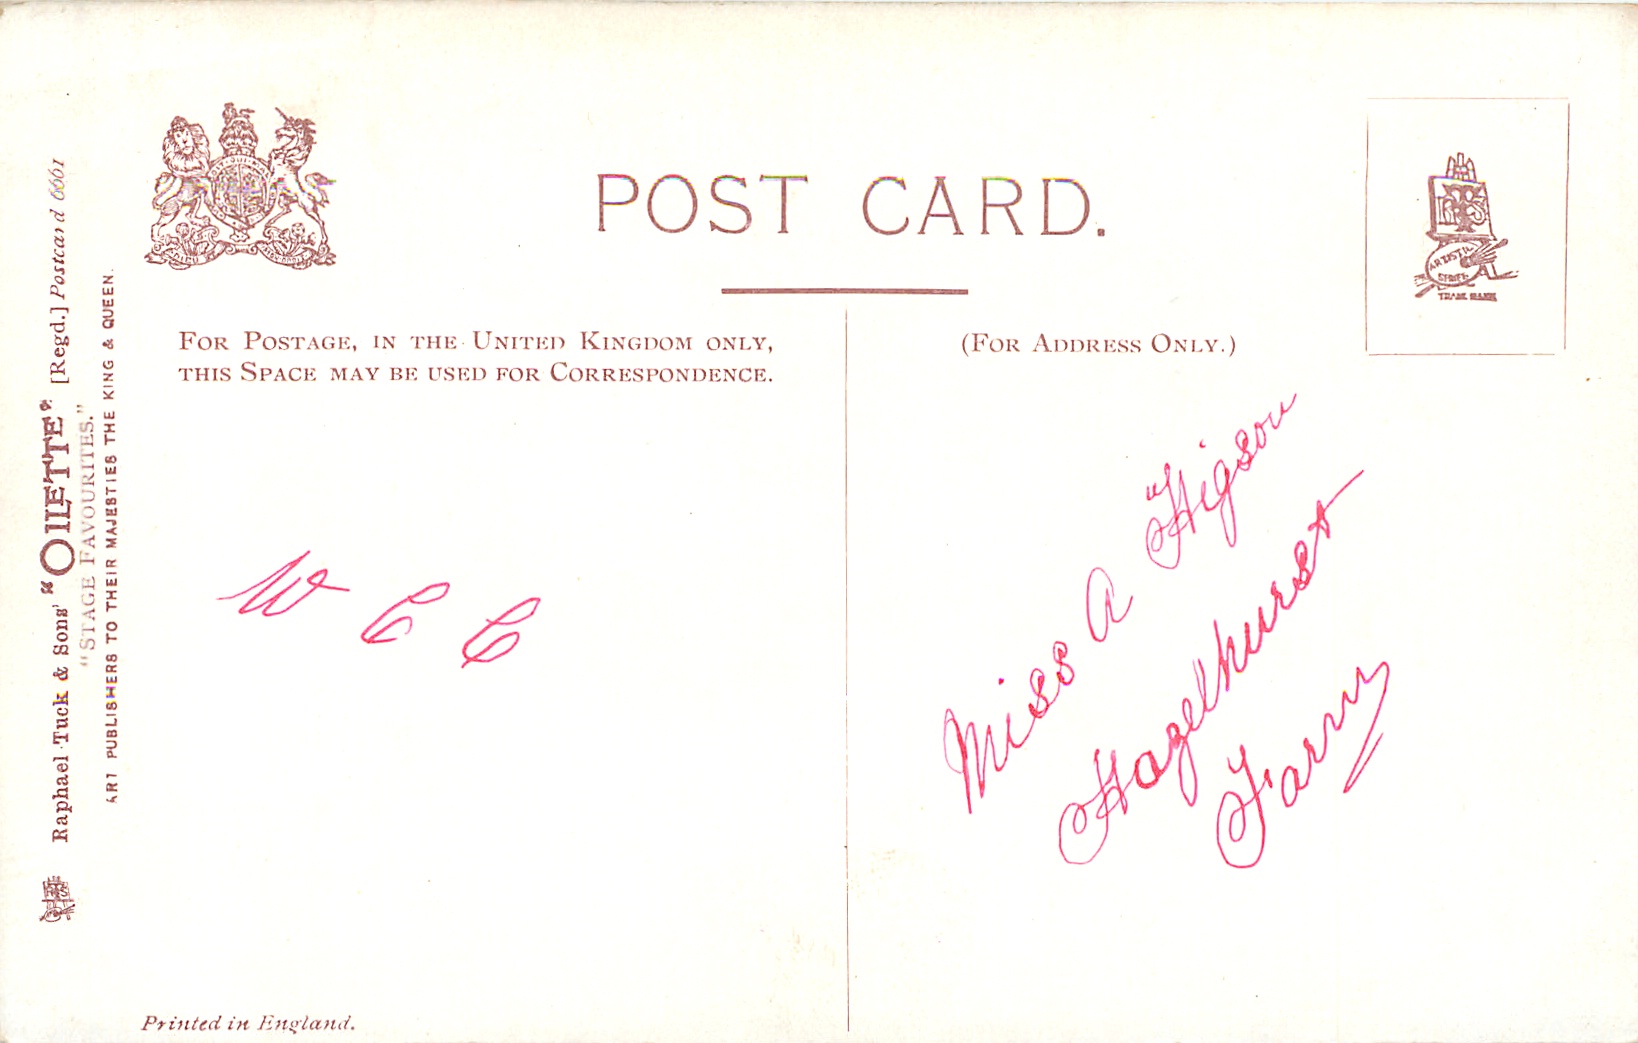 POST CARD.
FOR POSTAGE, IN THE UNITED KINGDOM ONLY,
THIS SPACE MAY BE USED FOR CORRESPONDENCE.
(FOR ADDRESS ONLY.)
ARTISTIC
SERIES
TRADE MARK
Raphael Tuck & Sons' "OILETTE" [Regd.] Postcard 6661
"STAGE FAVOURITES."
ART PUBLISHERS TO THEIR MAJESTIES THE KING & QUEEN.
W C C
Miss A Higson
Hazelhurst
Printed in England.